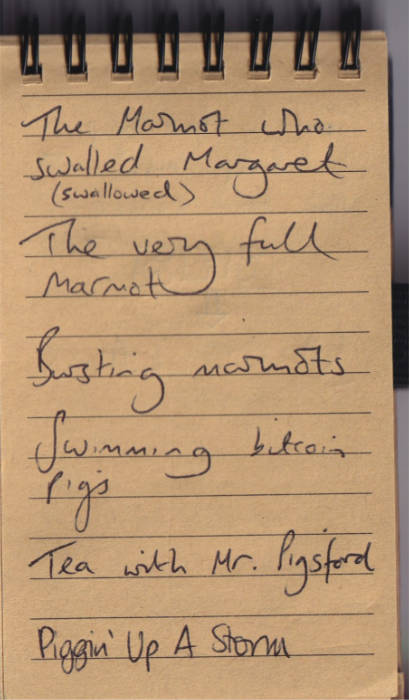 The Marmot who
swalled Margaret
(swallowed)
The very full
Marmot
Bursting marmots
Swimming bitcoin
pigs
Tea with Mr. Pigsford
Piggin' Up A Storm